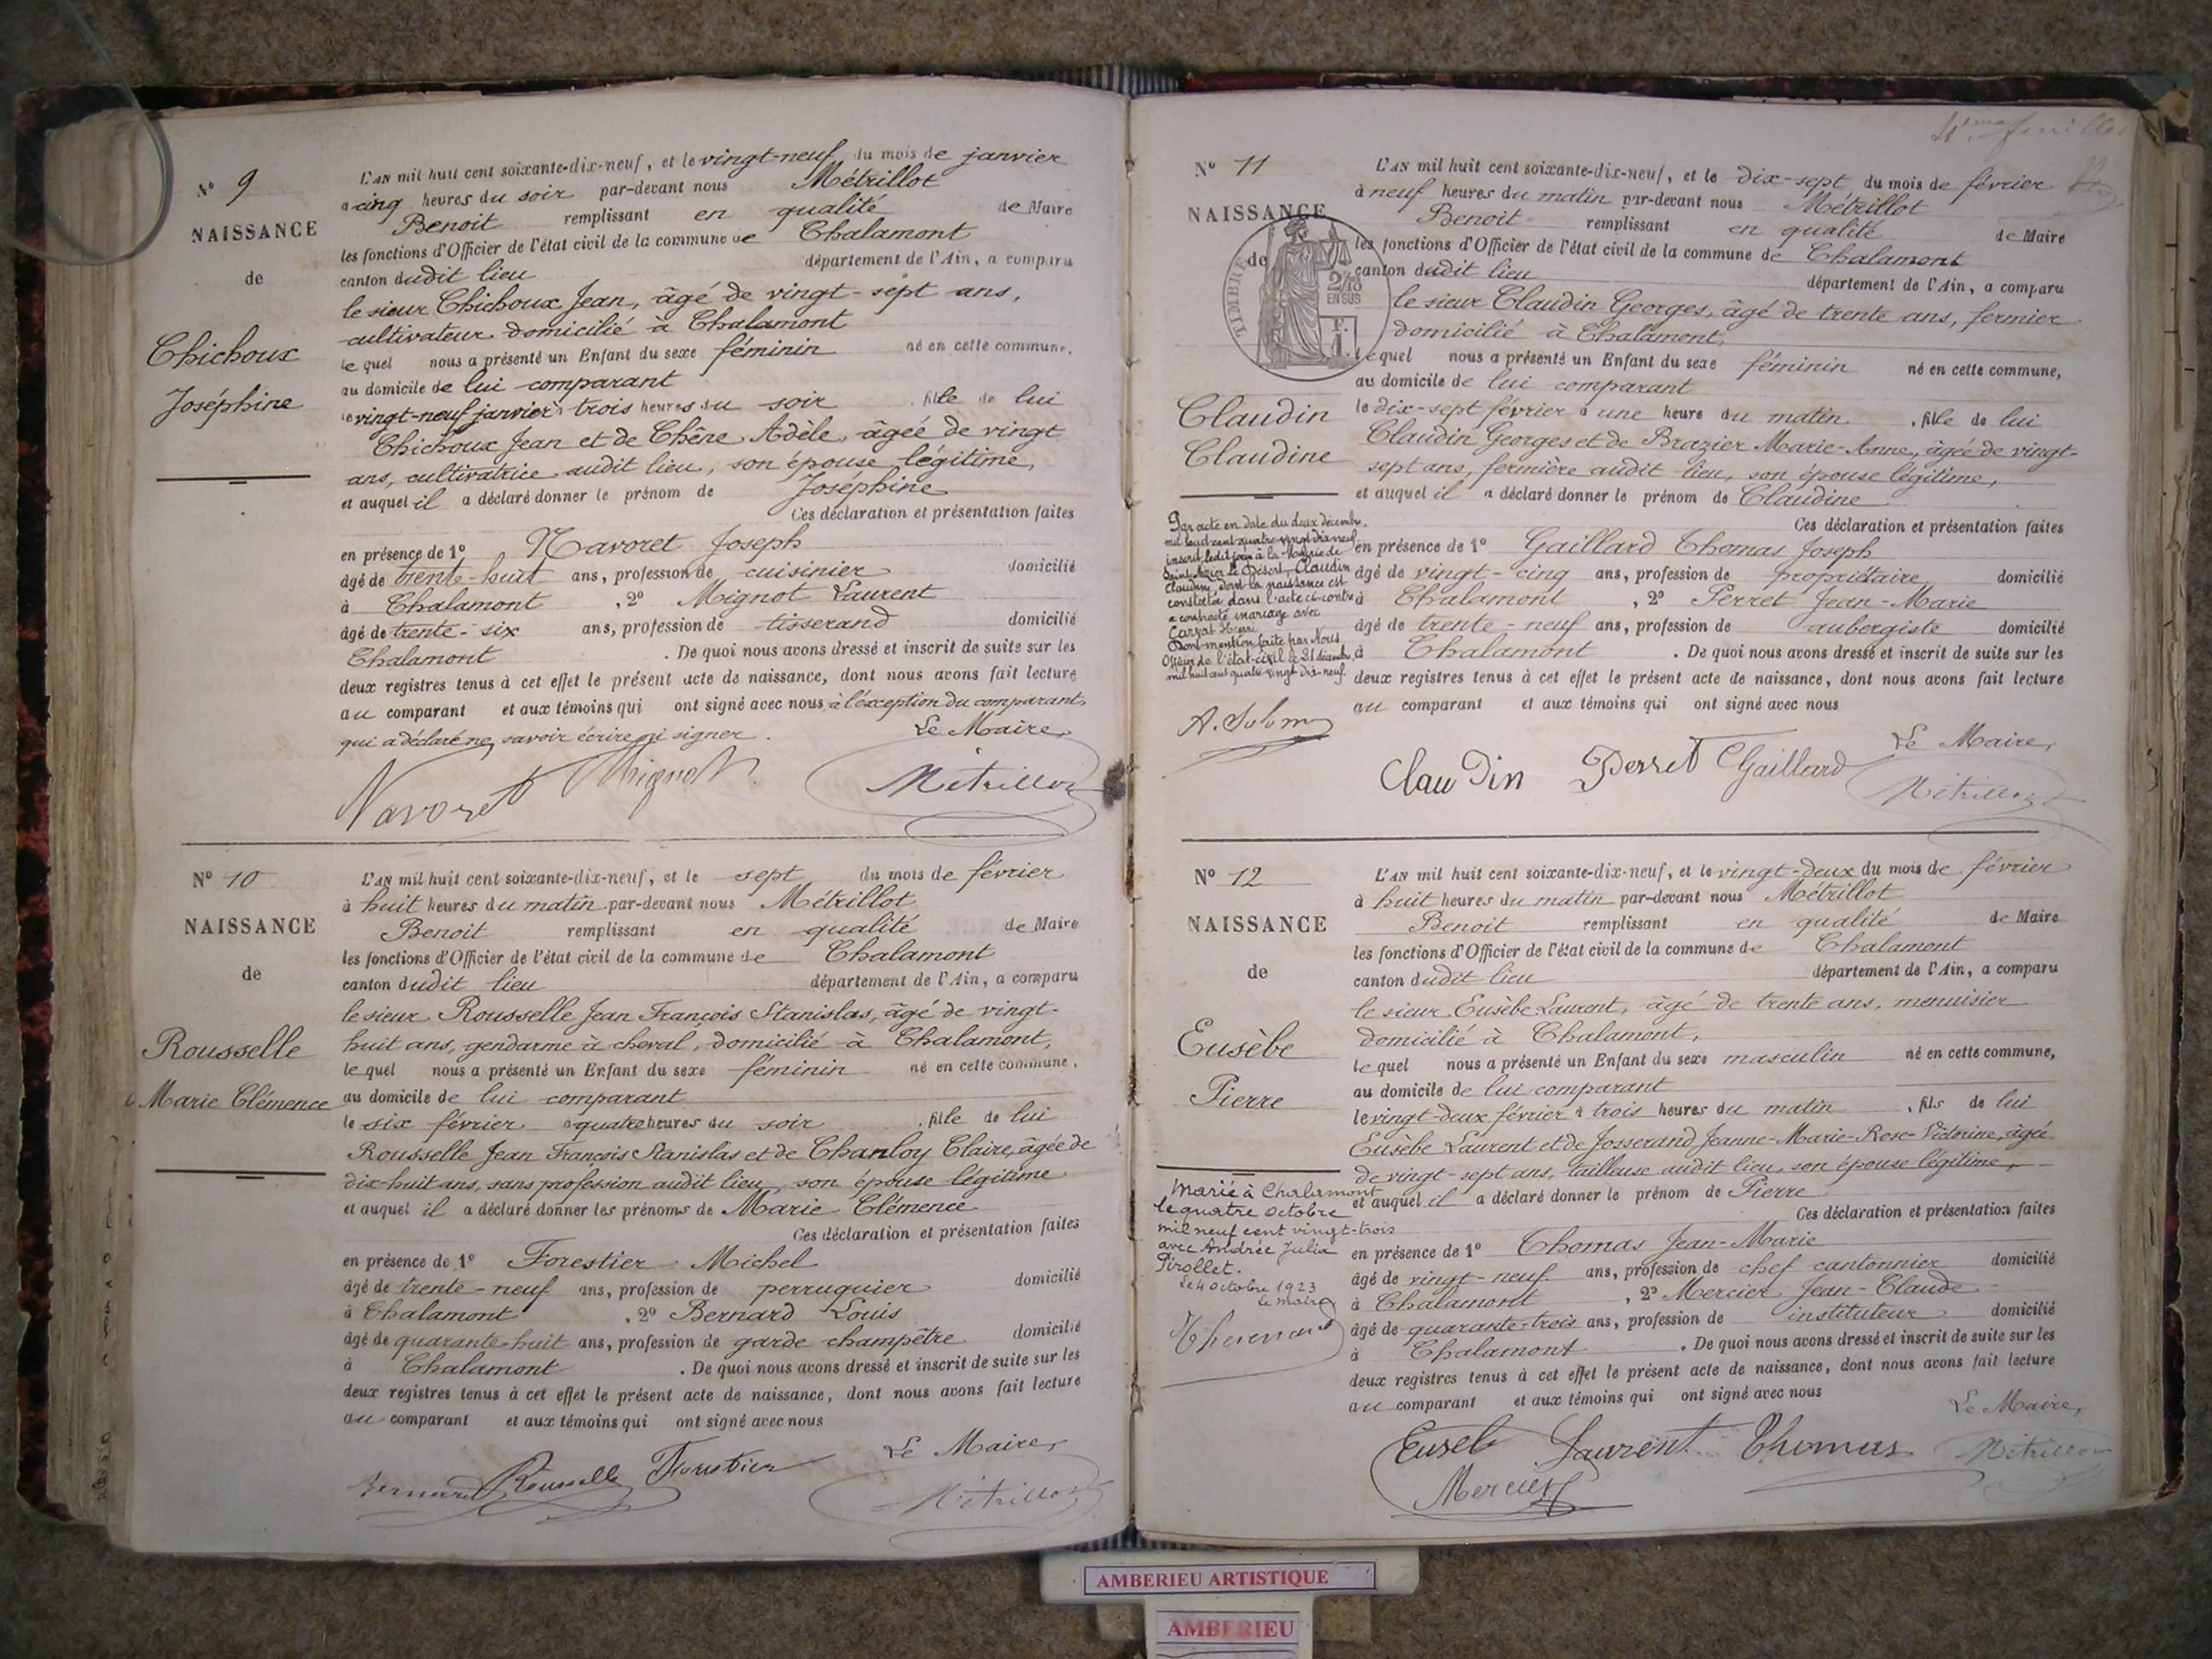 N° 9
NAISSANCE
de
Chichoux
Joséphine
L'AN mil huit cent soixante-dix-neuf, et le vingt-neuf du mois de janvier
à cinq heures du soir par-devant nous Métrillot
Benoit remplissant en qualité de Maire
les fonctions d'Officier de l'état civil de la commune de Chalamont
canton dudit lieu département de l'Ain, a comparu
le sieur Chichoux Jean, âgé de vingt-sept ans,
cultivateur domicilié à Chalamont
le quel nous a présenté un Enfant du sexe féminin né en cette commune,
au domicile de lui comparant
le vingt-neuf janvier à trois heures du soir , fille de lui
Chichoux Jean et de Chêne Adèle, âgée de vingt
ans, cultivatrice audit lieu, son épouse légitime,
et auquel il a déclaré donner le prénom de Joséphine
Ces déclaration et présentation faites
en présence de 1° Navoret Joseph
âgé de trente-huit ans, profession de cuisinier domicilié
à Chalamont , 2° Mignot Laurent
âgé de trente-six ans, profession de tisserand domicilié
Chalamont . De quoi nous avons dressé et inscrit de suite sur les
deux registres tenus à cet effet le présent acte de naissance, dont nous avons fait lecture
au comparant et aux témoins qui ont signé avec nous à l'exception du comparant,
qui a déclaré ne savoir écrire ni signer.
Le Maire,
Navoret Mignot Métrillot
N° 10
NAISSANCE
de
Rousselle
Marie Clémence
L'AN mil huit cent soixante-dix-neuf, et le sept du mois de février
à huit heures du matin par-devant nous Métrillot
Benoit remplissant en qualité de Maire
les fonctions d'Officier de l'état civil de la commune de Chalamont
canton dudit lieu département de l'Ain, a comparu
le sieur Rousselle Jean François Stanislas, âgé de vingt-
huit ans, gendarme à cheval, domicilié à Chalamont,
le quel nous a présenté un Enfant du sexe féminin né en cette commune,
au domicile de lui comparant
le six février à quatre heures du soir , fille de lui
Rousselle Jean François Stanislas et de Chanloy Claire, âgée de
dix-huit ans, sans profession audit lieu, son épouse légitime
et auquel il a déclaré donner les prénoms de Marie Clémence
Ces déclaration et présentation faites
en présence de 1° Forestier Michel
âgé de trente-neuf ans, profession de perruquier domicilié
à Chalamont , 2° Bernard Louis
âgé de quarante-huit ans, profession de garde champêtre domicilié
à Chalamont . De quoi nous avons dressé et inscrit de suite sur les
deux registres tenus à cet effet le présent acte de naissance, dont nous avons fait lecture
au comparant et aux témoins qui ont signé avec nous
Le Maire,
Bernard Rousselle Forestier Métrillot
4me feuillet
N° 11
NAISSANCE
de
TIMBRE
2/10
EN SUS
Claudin
Claudine
L'AN mil huit cent soixante-dix-neuf, et le dix-sept du mois de février
à neuf heures du matin par-devant nous Métrillot
Benoit remplissant en qualité de Maire
les fonctions d'Officier de l'état civil de la commune de Chalamont
canton dudit lieu département de l'Ain, a comparu
le sieur Claudin Georges, âgé de trente ans, fermier
domicilié à Chalamont,
le quel nous a présenté un Enfant du sexe féminin né en cette commune,
au domicile de lui comparant
le dix-sept février à une heure du matin , fille de lui
Claudin Georges et de Brazier Marie-Anne, âgée de vingt-
sept ans, fermière audit lieu, son épouse légitime,
et auquel il a déclaré donner le prénom de Claudine
Ces déclaration et présentation faites
en présence de 1° Gaillard Thomas Joseph
âgé de vingt-cinq ans, profession de propriétaire domicilié
à Chalamont , 2° Perret Jean-Marie
âgé de trente-neuf ans, profession de aubergiste domicilié
à Chalamont . De quoi nous avons dressé et inscrit de suite sur les
deux registres tenus à cet effet le présent acte de naissance, dont nous avons fait lecture
au comparant et aux témoins qui ont signé avec nous
Par acte en date du deux décembre
mil huit cent quatre-vingt dix neuf
inscrit ledit jour à la Mairie de
Saint-Nizier le Désert, Claudin
Claudine, dont la naissance est
constatée dans l'acte ci-contre
a contracté mariage avec
Carrat Henri
Dont mention faite par Nous
Officier de l'état-civil le 21 décembre
mil huit cent quatre-vingt dix-neuf.
Le Maire,
Claudin Perret Gaillard Métrillot
N° 12
NAISSANCE
de
Eusèbe
Pierre
L'AN mil huit cent soixante-dix-neuf, et le vingt-deux du mois de février
à huit heures du matin par-devant nous Métrillot
Benoit remplissant en qualité de Maire
les fonctions d'Officier de l'état civil de la commune de Chalamont
canton dudit lieu département de l'Ain, a comparu
le sieur Eusèbe Laurent, âgé de trente ans, menuisier
domicilié à Chalamont,
le quel nous a présenté un Enfant du sexe masculin né en cette commune,
au domicile de lui comparant
le vingt-deux février à trois heures du matin , fils de lui
Eusèbe Laurent et de Josserand Jeanne-Marie-Rose-Victorine, âgée
de vingt-sept ans, tailleuse audit lieu, son épouse légitime,
et auquel il a déclaré donner le prénom de Pierre
Ces déclaration et présentation faites
en présence de 1° Thomas Jean-Marie
âgé de vingt-neuf ans, profession de chef cantonnier domicilié
à Chalamont , 2° Mercier Jean-Claude
âgé de quarante-trois ans, profession de instituteur domicilié
à Chalamont . De quoi nous avons dressé et inscrit de suite sur les
deux registres tenus à cet effet le présent acte de naissance, dont nous avons fait lecture
au comparant et aux témoins qui ont signé avec nous
Marié à Chalamont
le quatre octobre
mil neuf cent vingt-trois
avec Andrée Julia
Pirollet.
Le 4 octobre 1923
Le maire
Le Maire,
Eusèbe Laurent Thomas Métrillot
Mercier
AMBERIEU ARTISTIQUE
AMBERIEU